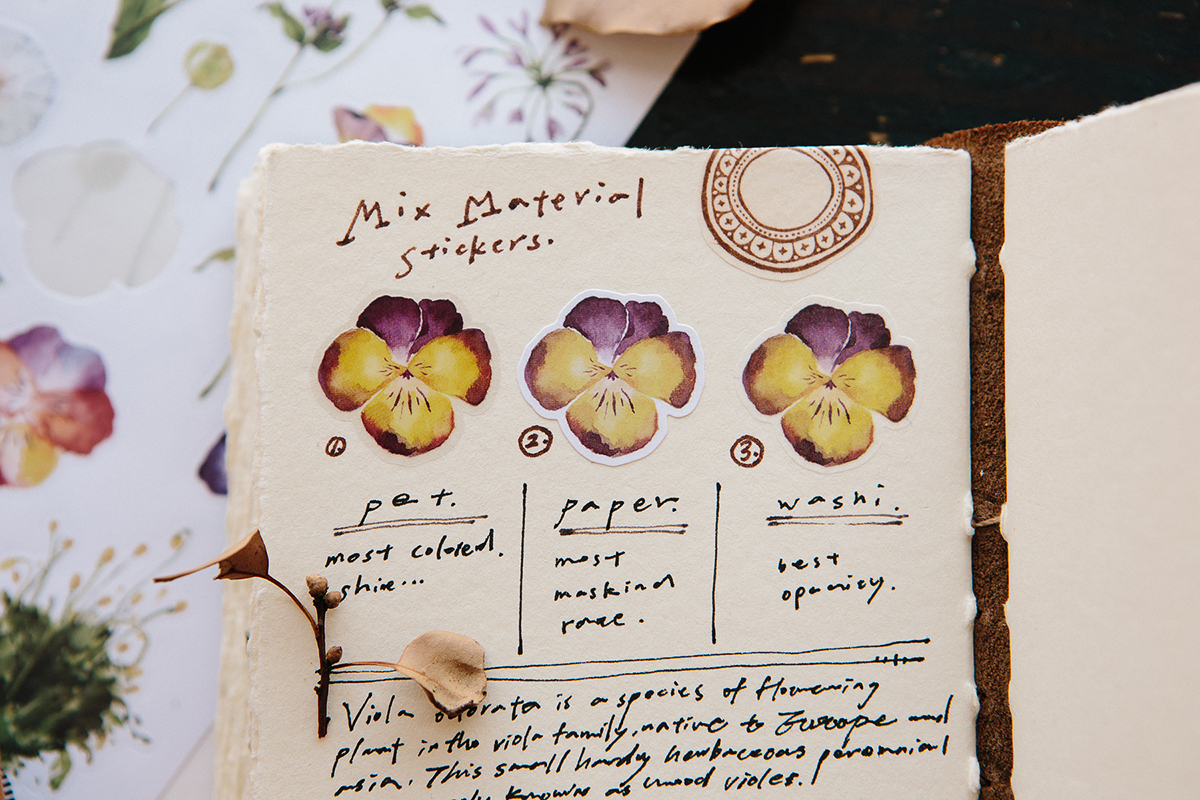 Mix Material
stickers.
1.
2.
3.
pet.
most colored.
shine...
paper.
most
washi.
best
opacity.
Viola odorata is a species of flowering
plant in the viola family, native to Europe and
asia. This small hardy herbaceous perennial
known as wood violes.